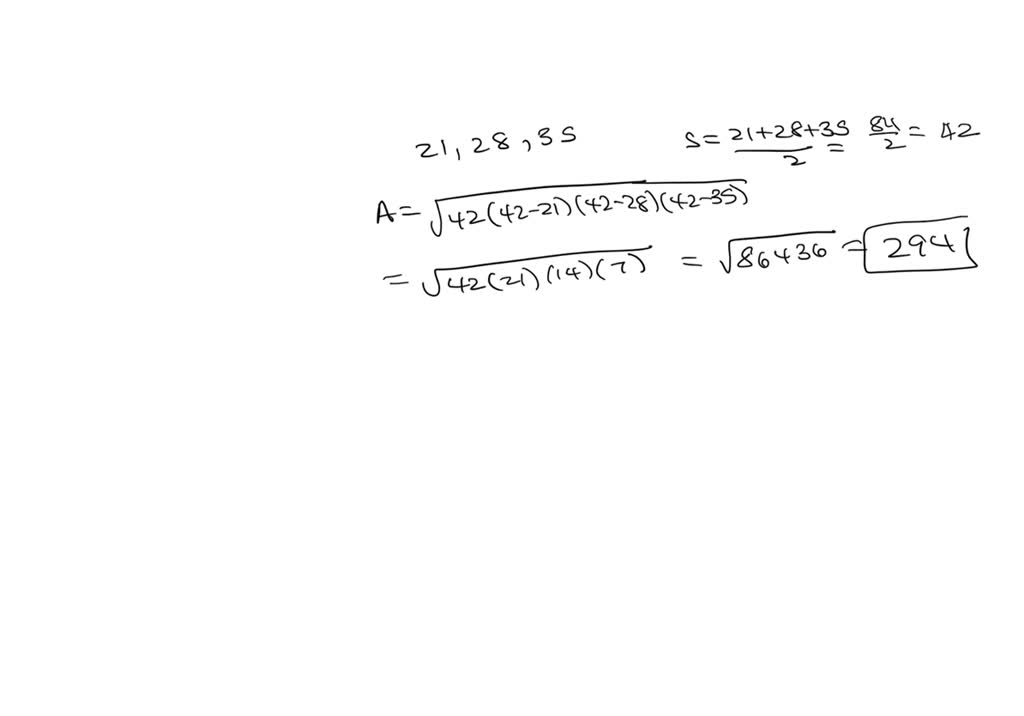 21, 28, 35 s = 21+28+35/2 = 84/2 = 42
A = √42(42-21)(42-28)(42-35)
= √42(21)(14)(7) = √86436 = 294